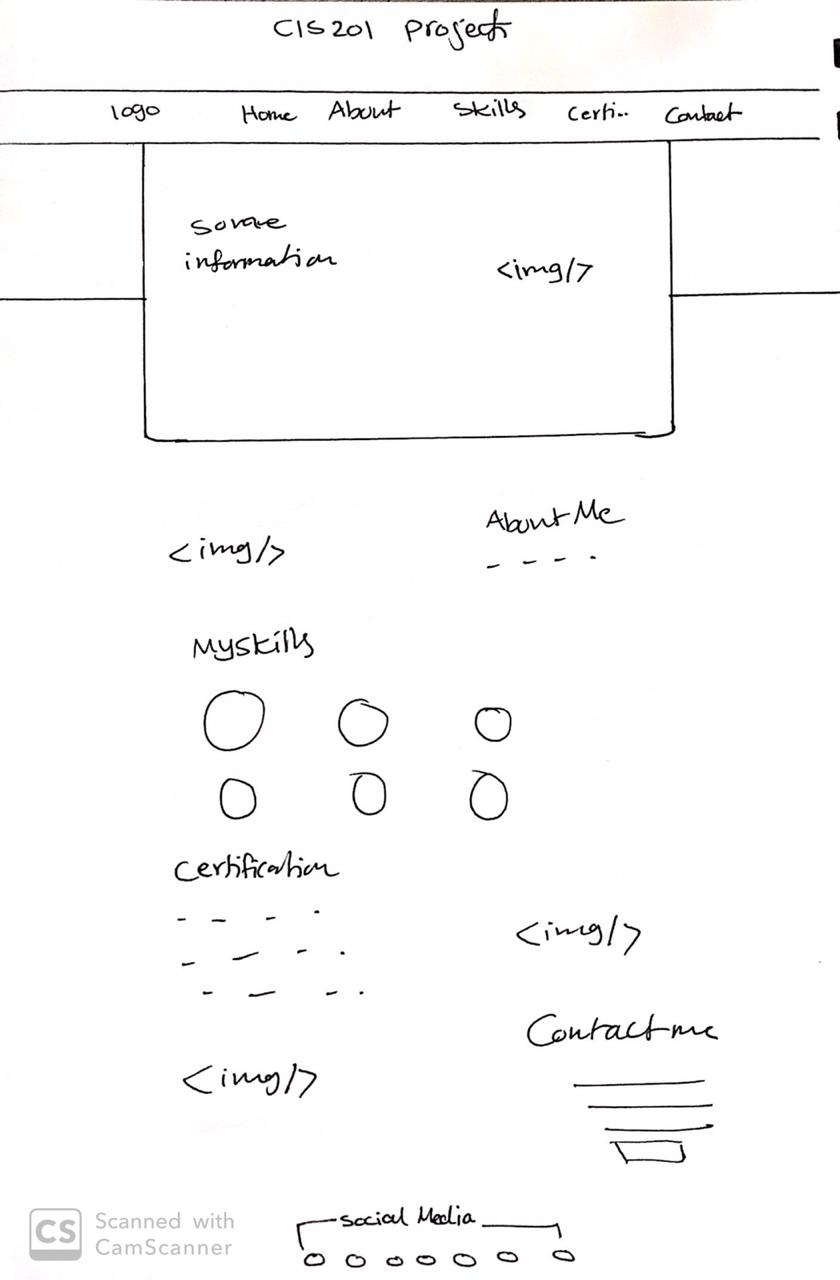 CIS201 Project
logo Home About Skills Certi.. Contact
some
information
<img/>
<img/>
About Me
My skills
Certification
<img/>
Contact me
<img/>
Social Media
CS Scanned with
CamScanner